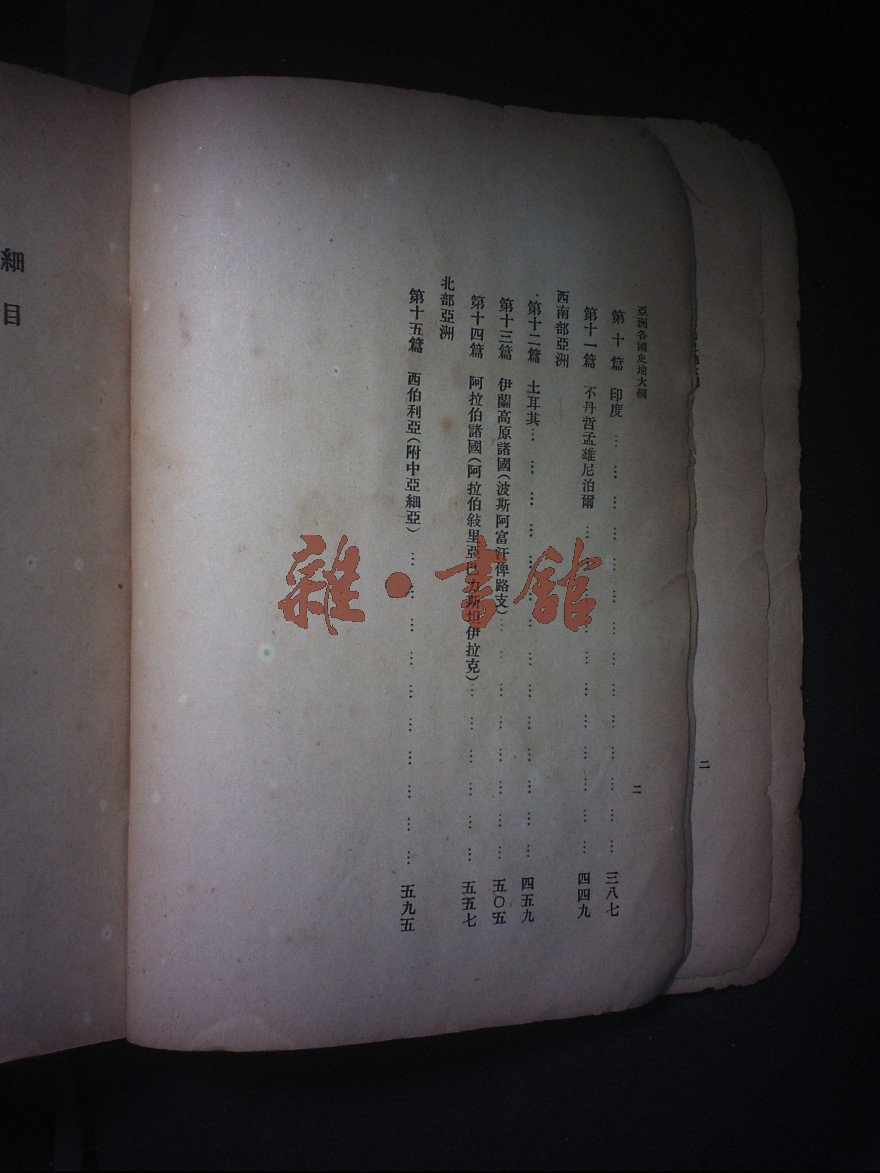 亞洲各國史地大綱
二
第十篇 印度 … … … … … … … … … … … … … 三八七
第十一篇 不丹哲孟雄尼泊爾 … … … … … … … … … … 四四九
西南部亞洲
第十二篇 土耳其 … … … … … … … … … … … … … 四五九
第十三篇 伊蘭高原諸國(波斯阿富汗俾路支) … … … … … … … … 五〇五
第十四篇 阿拉伯諸國(阿拉伯敍里亞巴力斯坦伊拉克) … … … … … … 五五七
北部亞洲
第十五篇 西伯利亞(附中亞細亞) … … … … … … … … … … 五九五
細目
二
雜·書館